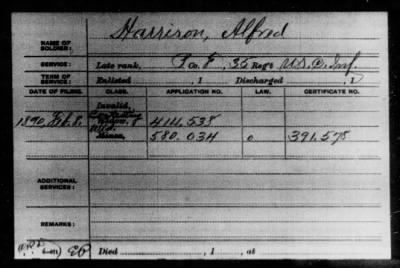 NAME OF SOLDIER: Harrison, Alfred
SERVICE: Late rank, P Co. E, 35 Reg't U.S.C. Inf.
TERM OF SERVICE: Enlisted , 1 Discharged , 1
DATE OF FILING. CLASS. APPLICATION NO. LAW. CERTIFICATE NO.
Invalid,
1890, Feb. 8, Widow, 414.538
Minor, 580.034 391.575
ADDITIONAL SERVICES:
REMARKS:
Died , 1 , at